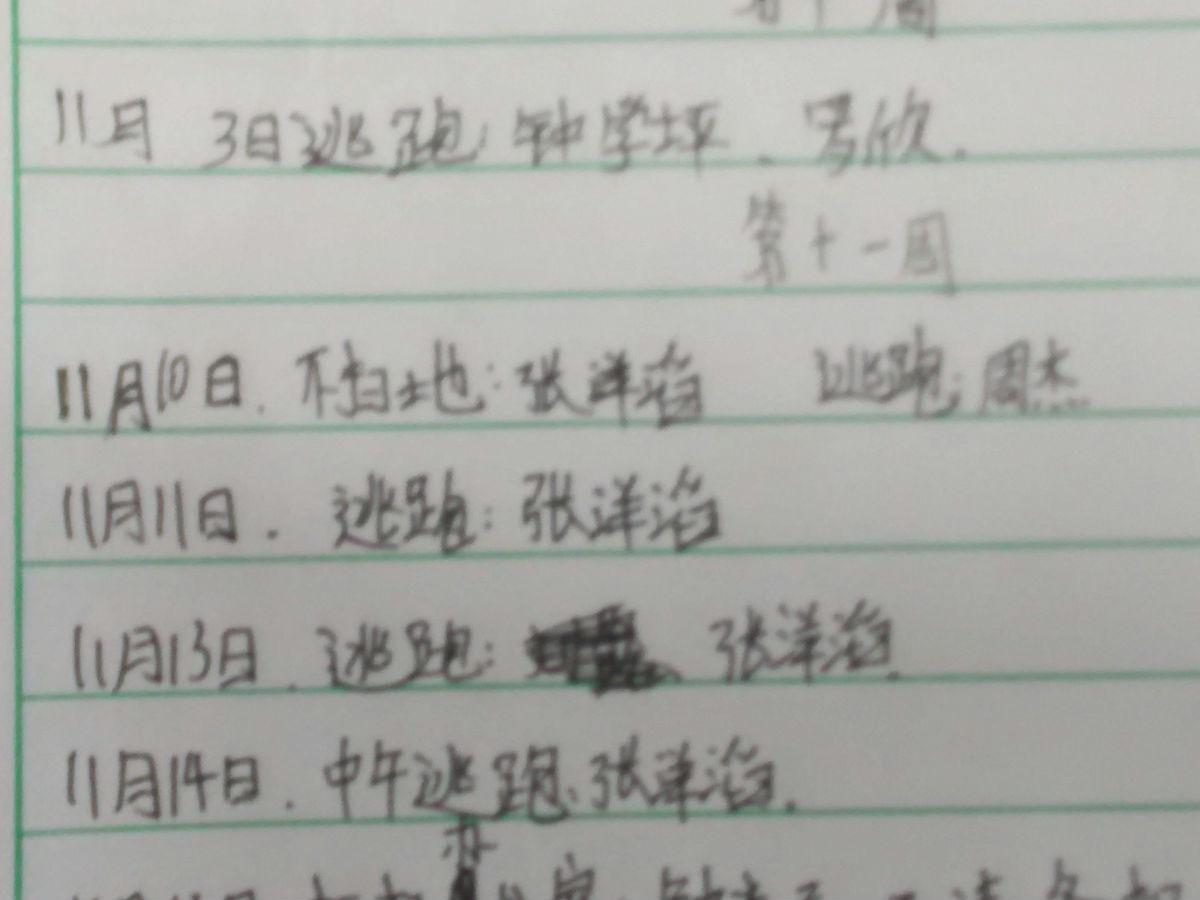 11月 3日逃跑:钟学坪、号欣.
第十一周
11月10日. 不扫地:张洋滔 逃跑:周杰
11月11日. 逃跑:张洋滔
11月13日. 逃跑: 张洋滔.
11月14日. 中午逃跑:张洋滔.